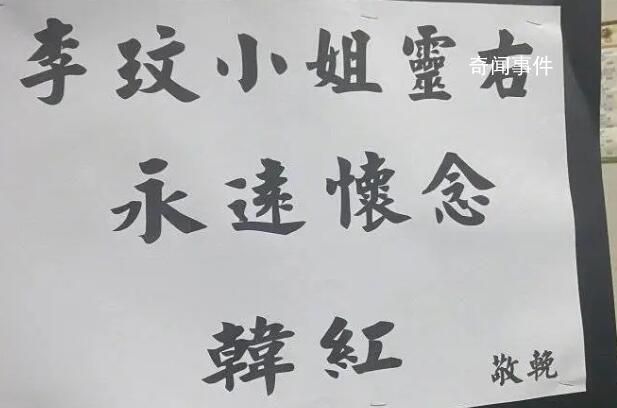 李玟小姐靈右
奇闻事件
永遠懷念
韓紅
敬輓